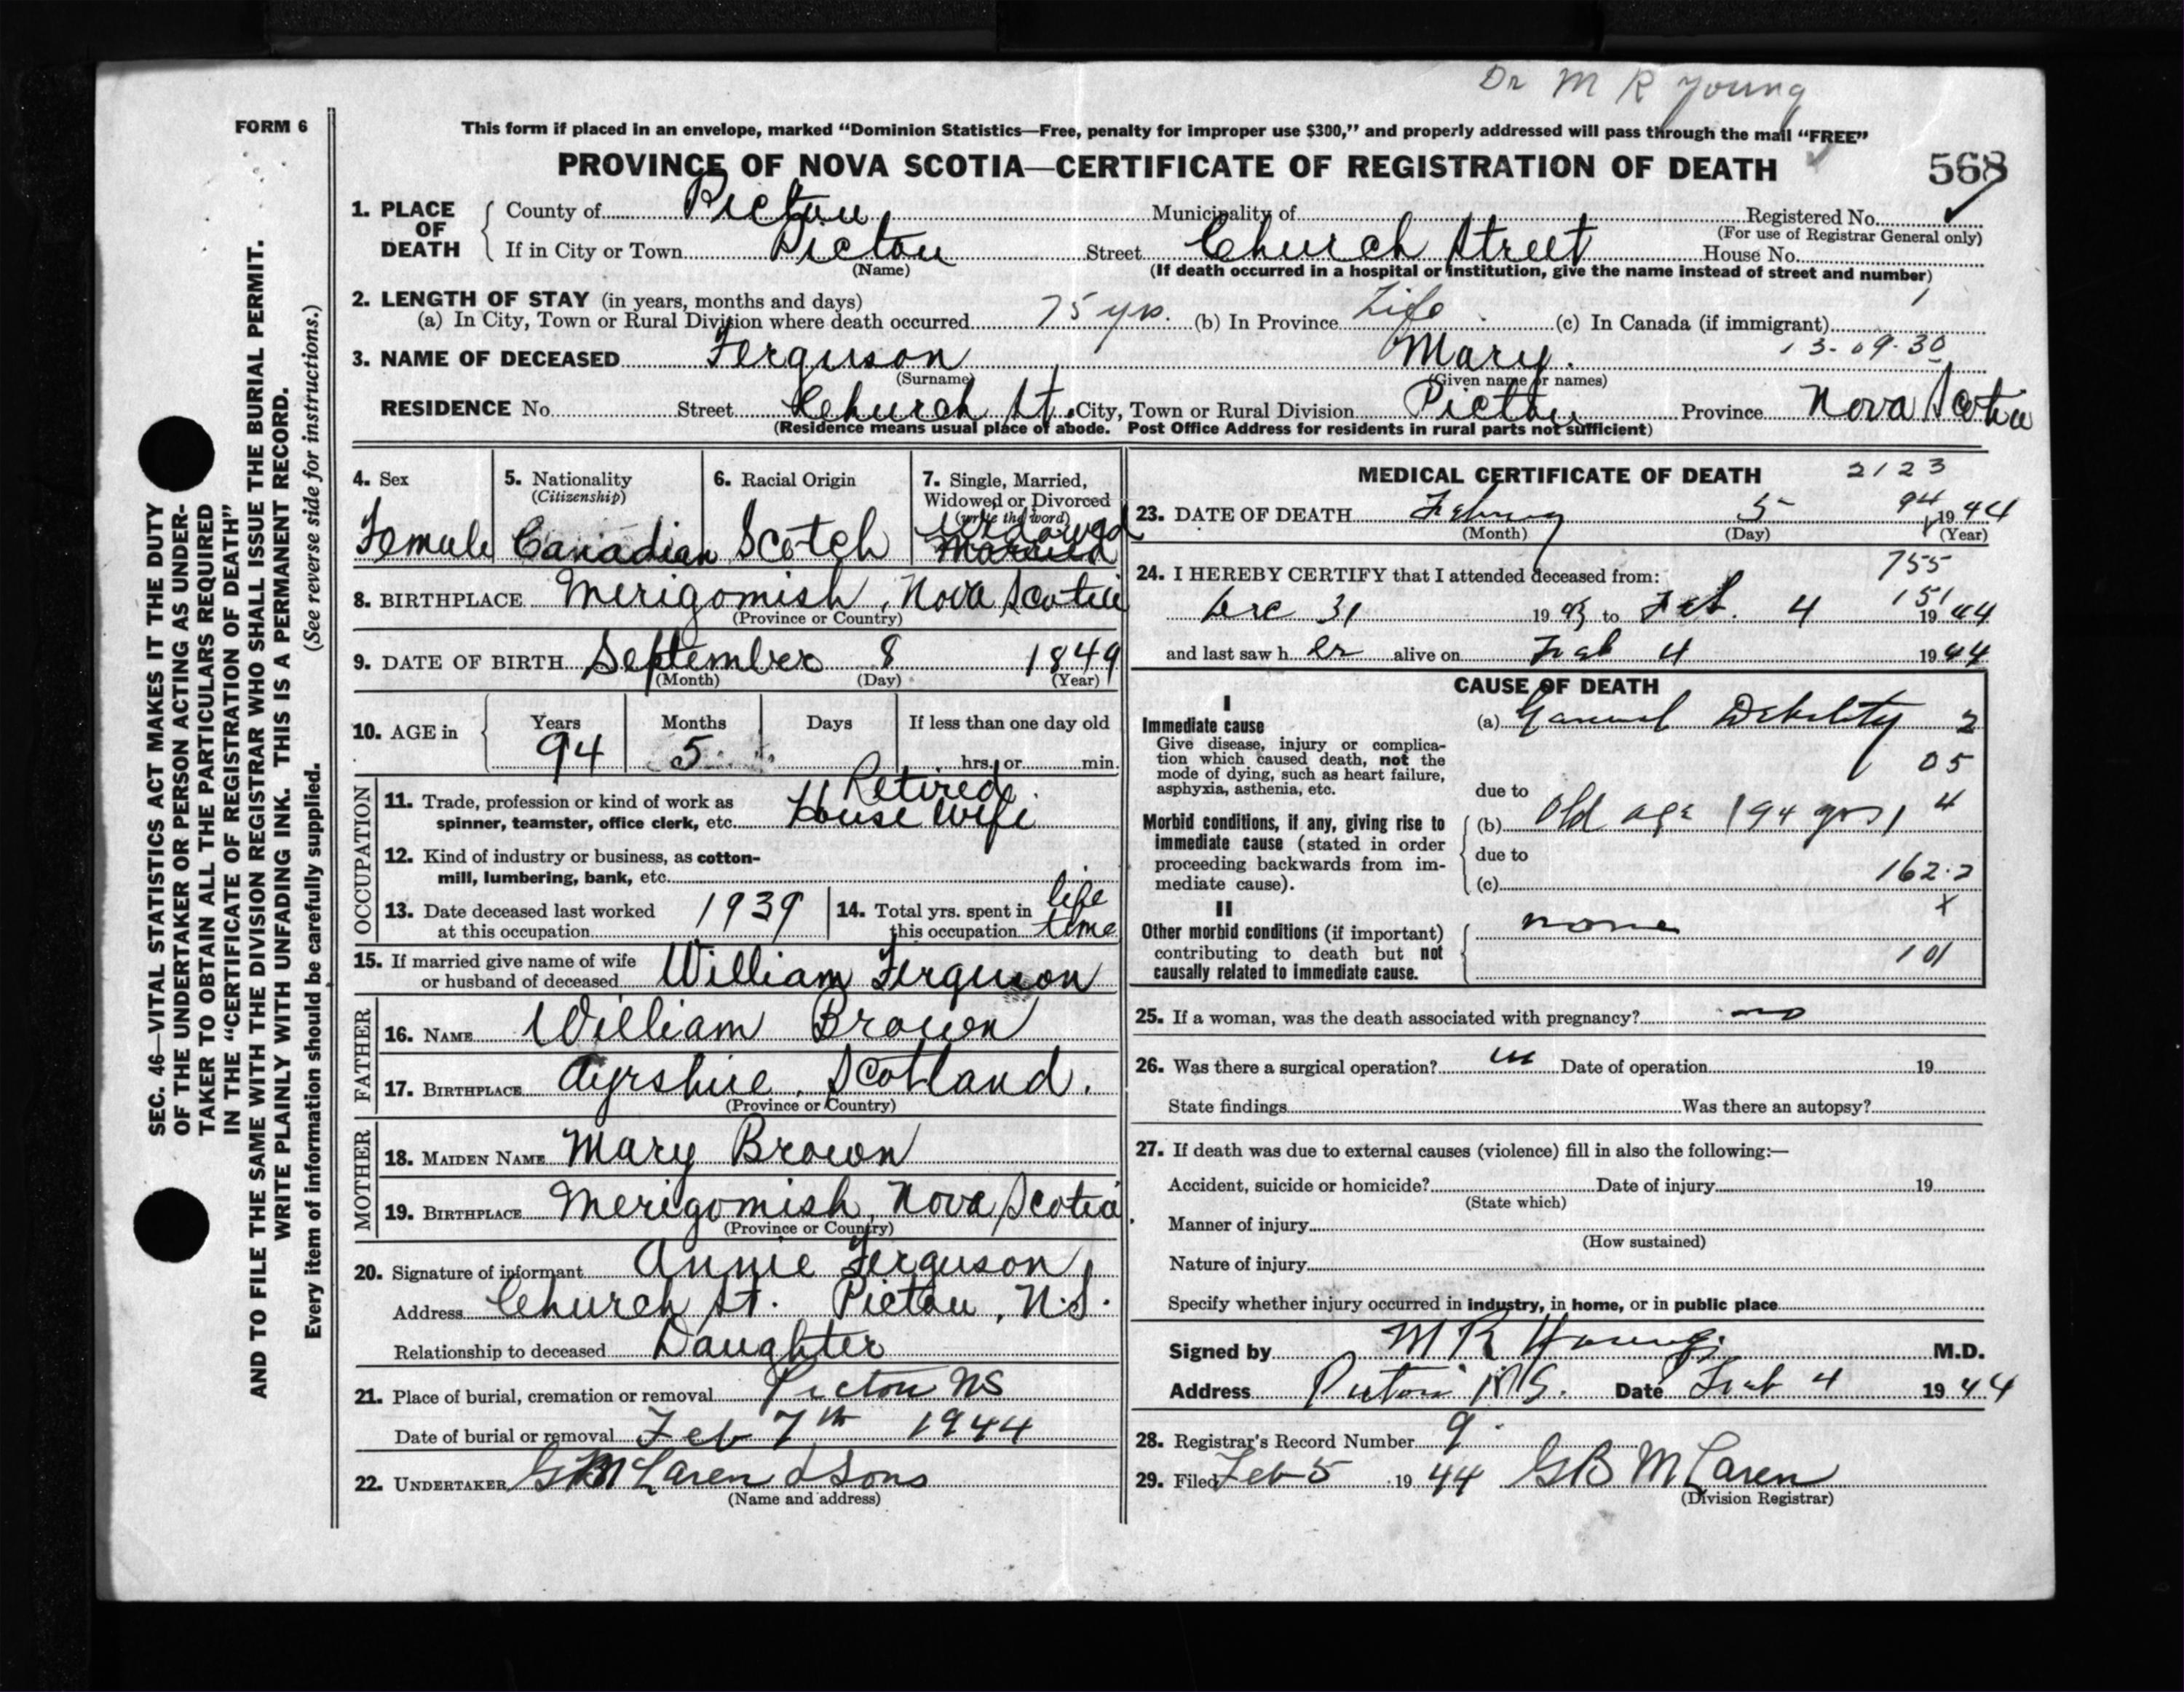 Dr M R Young
FORM 6
This form if placed in an envelope, marked “Dominion Statistics—Free, penalty for improper use $300,” and properly addressed will pass through the mail “FREE”
PROVINCE OF NOVA SCOTIA—CERTIFICATE OF REGISTRATION OF DEATH
568
1. PLACE OF DEATH
County of Pictou
Municipality of
Registered No.
(For use of Registrar General only)
If in City or Town Pictou
(Name)
Street Church Street
House No.
(If death occurred in a hospital or institution, give the name instead of street and number)
2. LENGTH OF STAY (in years, months and days)
1
(a) In City, Town or Rural Division where death occurred 75 yrs. (b) In Province Life (c) In Canada (if immigrant)
13-09-30
3. NAME OF DECEASED Ferguson Mary.
(Surname) (Given name or names)
RESIDENCE No. Street Church St. City, Town or Rural Division Pictou Province Nova Scotia
(Residence means usual place of abode. Post Office Address for residents in rural parts not sufficient)
4. Sex
Female
5. Nationality
(Citizenship)
Canadian
6. Racial Origin
Scotch
7. Single, Married,
Widowed or Divorced
(write the word)
widowed
Married
8. BIRTHPLACE Merigomish, Nova Scotia
(Province or Country)
9. DATE OF BIRTH September 8 1849
(Month) (Day) (Year)
10. AGE in
Years Months Days If less than one day old
94 5 hrs. or min.
OCCUPATION
Retired
11. Trade, profession or kind of work as
spinner, teamster, office clerk, etc. House Wife
12. Kind of industry or business, as cotton-
mill, lumbering, bank, etc.
13. Date deceased last worked
at this occupation 1939
14. Total yrs. spent in
this occupation life time
15. If married give name of wife
or husband of deceased William Ferguson
FATHER
16. NAME William Brown
17. BIRTHPLACE Ayrshire, Scotland.
(Province or Country)
MOTHER
18. MAIDEN NAME Mary Brown
19. BIRTHPLACE Merigomish, Nova Scotia
(Province or Country)
20. Signature of informant Annie Ferguson
Address Church St. Pictou, N.S.
Relationship to deceased Daughter
21. Place of burial, cremation or removal Pictou NS
Date of burial or removal Feb 7th 1944
22. UNDERTAKER G B McLaren & Sons
(Name and address)
MEDICAL CERTIFICATE OF DEATH
2123
94
23. DATE OF DEATH February 5 1944
(Month) (Day) (Year)
755
24. I HEREBY CERTIFY that I attended deceased from:
151
Dec 31 1943 to Feb. 4 1944
and last saw her alive on Feb 4 1944
CAUSE OF DEATH
I
Immediate cause
Give disease, injury or complica-
tion which caused death, not the
mode of dying, such as heart failure,
asphyxia, asthenia, etc.
(a) General Debility 2
05
due to
Morbid conditions, if any, giving rise to
immediate cause (stated in order
proceeding backwards from im-
mediate cause).
(b) Old age (94 yrs) 4
due to
(c) 162.2
X
II
Other morbid conditions (if important)
contributing to death but not
causally related to immediate cause.
none
101
25. If a woman, was the death associated with pregnancy? no
26. Was there a surgical operation? Date of operation 19
State findings Was there an autopsy?
27. If death was due to external causes (violence) fill in also the following:—
Accident, suicide or homicide? Date of injury 19
(State which)
Manner of injury
(How sustained)
Nature of injury
Specify whether injury occurred in industry, in home, or in public place
Signed by M R Young M.D.
Address Pictou N.S. Date Feb 4 1944
28. Registrar's Record Number 9
29. Filed Feb 5 1944 G B McLaren
(Division Registrar)
SEC. 46—VITAL STATISTICS ACT MAKES IT THE DUTY
OF THE UNDERTAKER OR PERSON ACTING AS UNDER-
TAKER TO OBTAIN ALL THE PARTICULARS REQUIRED
IN THE “CERTIFICATE OF REGISTRATION OF DEATH”
AND TO FILE THE SAME WITH THE DIVISION REGISTRAR WHO SHALL ISSUE THE BURIAL PERMIT.
WRITE PLAINLY WITH UNFADING INK. THIS IS A PERMANENT RECORD.
Every item of information should be carefully supplied. (See reverse side for instructions.)